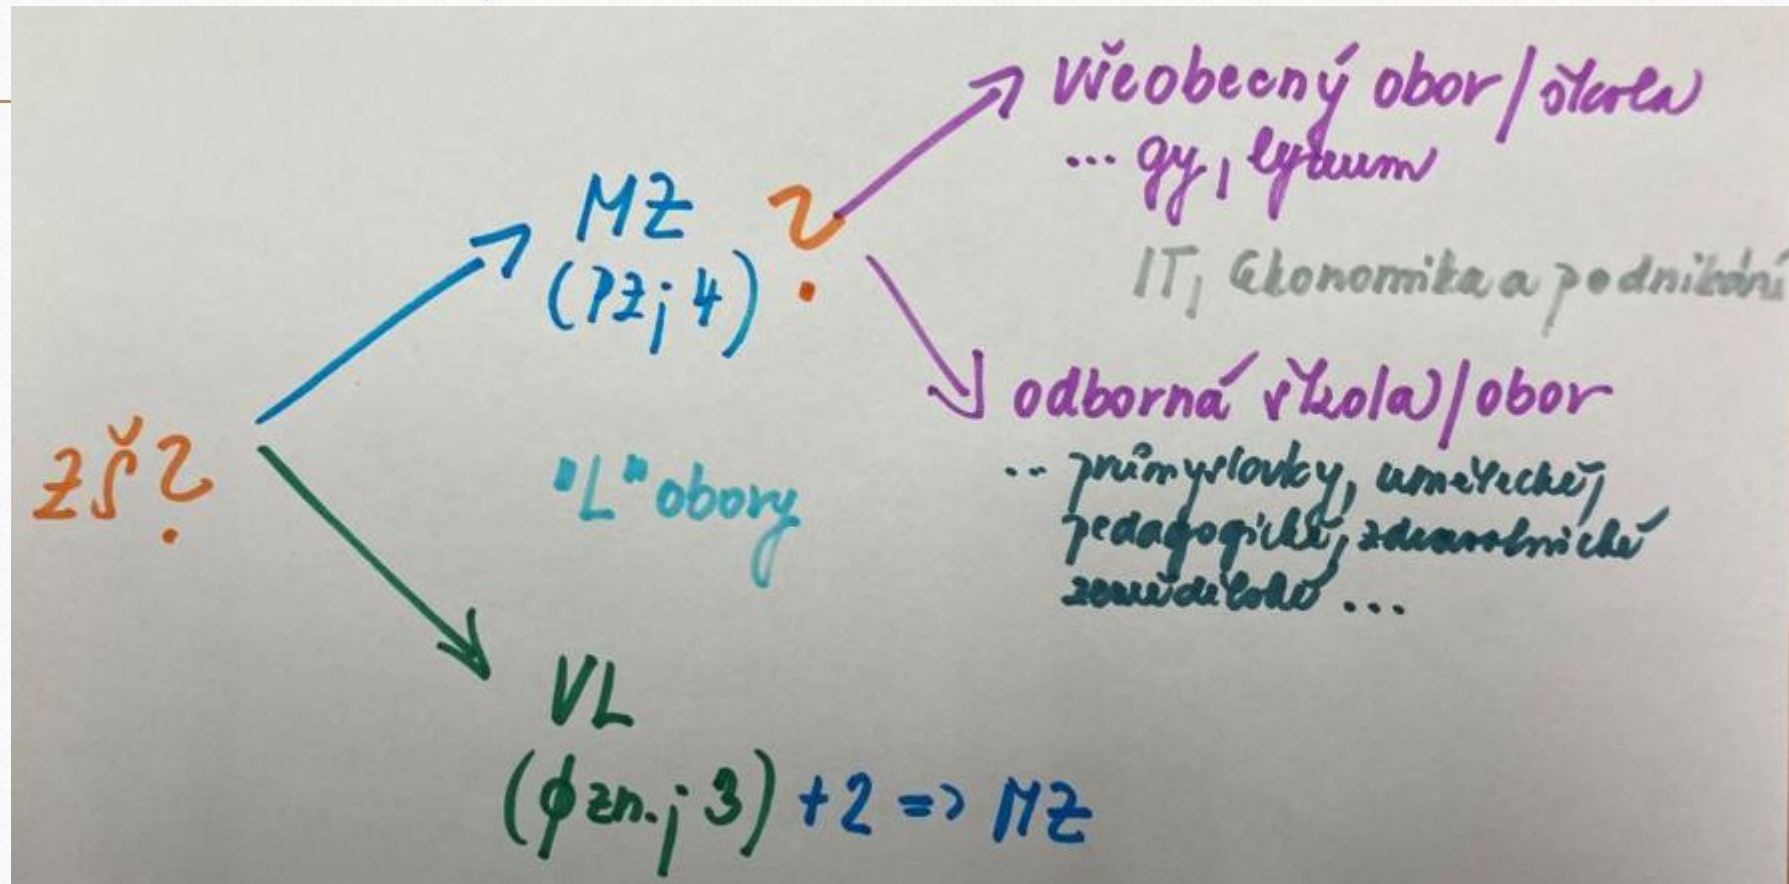 všeobecný obor / škola
... gy, lyceum
MZ ?
(PZ; 4)
IT, Ekonomika a podnikání
odborná škola / obor
ZŠ?
"L" obory
... průmyslovky, umělecké,
pedagogické, zdravotnické
zemědělské ...
VL
(ϕ zn.; 3) +2 => MZ